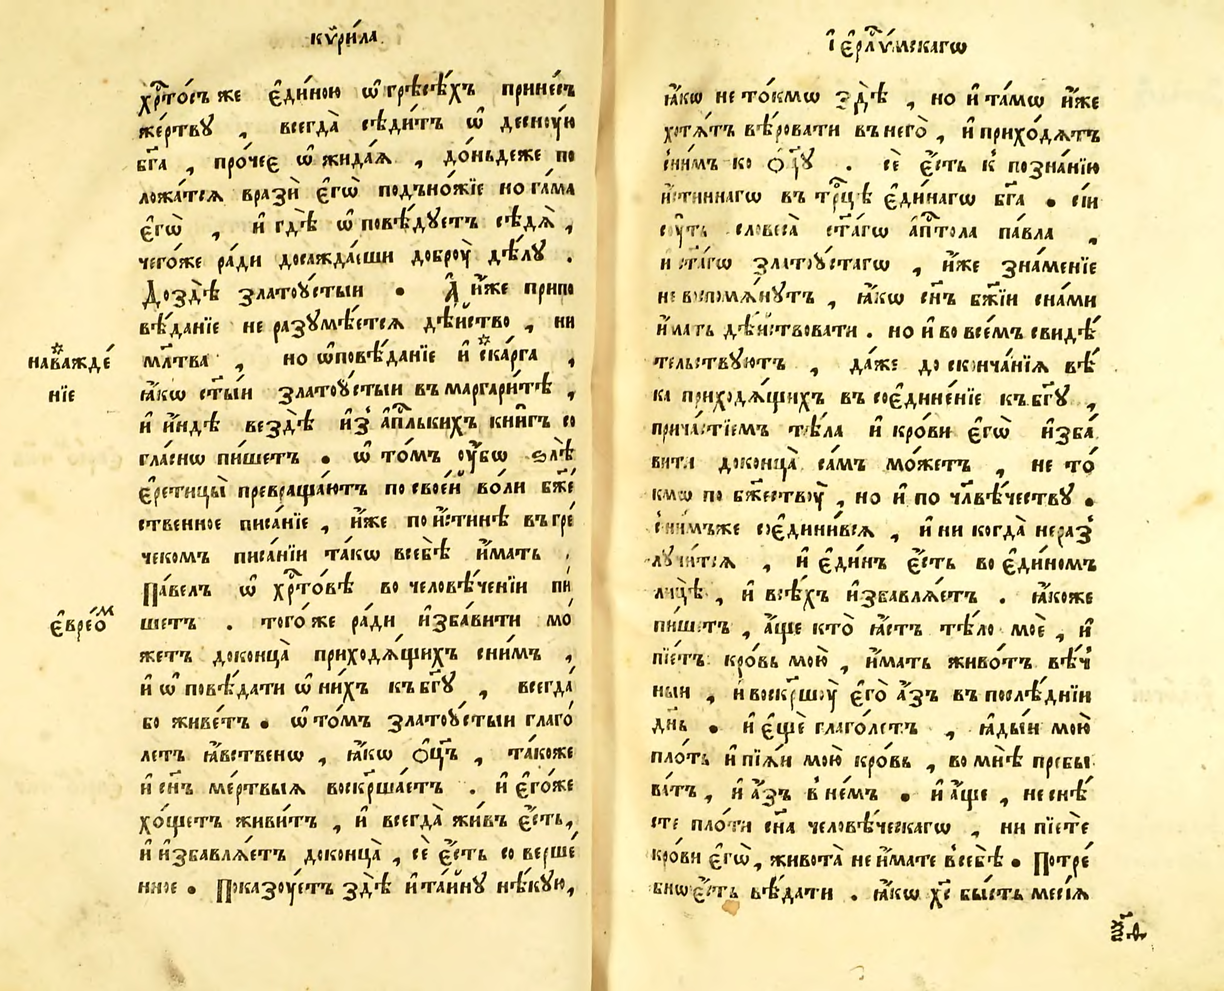 кѷри́ла
хрⷭ҇то́съ же є҆ди́ною ѡ҆ грѣсѣ́хъ прине́съ
же́ртвꙋ , всегда̀ сѣди́тъ ѡ҆ деснꙋ́ю
бг҃а , про́чеє ѡ҆жида́ѧ , до́ньдеже по
ложа́тсѧ врази̂ є҆гѡ̀ подъно́жїе нога́ма
є҆гѡ̀ , и҆ гдѣ̀ ѡ҆повѣ́дꙋетъ сѣдѧ̀ ,
чегоже ра́ди досажда́еши доброу̀ дѣ́лꙋ .
Доздѣ̀ златоꙋ́стыи . А҆ и҆́же припо
вѣ́данїе не разꙋмѣ́етсѧ дѣ́йство , ни
наважде́
мл҃тва , но ѡ҆повѣ́данїе и҆ ска́рга ,
нїе
ꙗ҆́кѡ ст҃ы́и златоꙋ́стыи въ маргари́тѣ ,
и҆ и҆́ндѣ вездѣ̀ и҆з̾ а҆пⷭ҇льких̾ кни́гъ со
гла́снѡ пи́шетъ . ѡ҆ то́мъ оу҆́бѡ ѕлѣ̀
є҆ретицы̀ превраща́ютъ по свое́и во́ли бж҃е
ственное писа́нїе , и҆́же по и҆́стинѣ въ гре́
ческомъ писа́нїи та́кѡ всебѣ̀ и҆́мать ,
Па́велъ ѡ҆ хрⷭ҇то́вѣ во человѣ́ченїи пи́
є҆вре́ѡⷨ
шетъ . того́ же ра́ди и҆зба́вити мо́
жетъ доконца̀ приходѧ́щихъ сни́мъ ,
и҆ ѡ҆повѣ́дати ѡ҆ ни́хъ къ бг҃ꙋ , всегда́
бо живе́тъ . ѡ҆ то́мъ златоꙋ́стыи глаго́
летъ ꙗ҆́вственѡ , ꙗ҆́кѡ ѻ҆ц҃ъ , та́коже
и҆ сн҃ъ ме́ртвыѧ воскрⷭ҇ша́етъ . и҆ є҆го́же
хо́щетъ живи́тъ , и҆ всегда̀ жи́въ є҆́сть,
и҆ и҆збавлѧ́етъ доконца̀ , сѐ є҆́сть соверше́
нное . Показоу́етъ здѣ̀ и҆ та́йнꙋ нѣ́кꙋю,
і҆ерⷭ҇лу́мскагѡ
ꙗ҆́кѡ не то́кмѡ здѣ̀ , но и҆ та́мѡ и҆́же
хотѧ́тъ вѣ́ровати въ него̀ , и҆ прихо́дѧтъ
сни́мъ ко ѻ҆ц҃ꙋ . сѐ є҆́сть к̾ позна́нїю
и҆́стиннагѡ въ трⷪ҇цѣ є҆ди́нагѡ бг҃а . сїи
соу́ть словеса̀ ст҃а́гѡ а҆пⷭ҇тола па́вла ,
и ст҃а́гѡ златоꙋ́стагѡ , и҆́же зна́менїе
не вспомѧ́нꙋтъ , ꙗ҆́кѡ сн҃ъ бж҃їи сна́ми
и҆́мать дѣ́йствовати . но и҆ во все́мъ свидѣ́
тельствꙋютъ , да́же до сконча́нїѧ вѣ́
ка приходѧ́щихъ въ соє҆дине́нїе къ бг҃ꙋ ,
прича́стїемъ тѣ́ла и҆ кро́ви є҆гѡ̀ и҆зба́
вити доконца̀ са́мъ мо́жетъ , не то́
кмѡ по бж҃ествоу̀ , но и҆ по чл҃вѣ́чествꙋ .
сни́мъже соє҆дини́всѧ , и҆ ни когда̀ нераз̾
лꙋчи́тсѧ , и҆ є҆ди́нъ є҆́сть во є҆ди́номъ
лицѣ̀ , и҆ всѣ́хъ и҆збавлѧ́етъ . ꙗ҆́коже
пи́шетъ , а҆́ще кто̀ ꙗ҆́стъ тѣ́ло моѐ , и҆
пїе́тъ кро́вь мою̀ , и҆́мать живо́тъ вѣ́ч
ныи , и҆ воскрⷭ҇шоу̀ є҆го̀ а҆́зъ въ послѣ́днїи
дн҃ь . и҆ є҆щѐ глаго́летъ , ꙗ҆ды́и мою̀
пло́ть и҆ пїѧ́и мою̀ кро́вь , во мнѣ̀ пребы
ва́тъ , и҆ а҆́зъ в̾ не́мъ . и҆ а҆́ще , не снѣ́
сте пло́ти сн҃а человѣ́ческагѡ , ни пїе́те
кро́ви є҆гѡ̀ , живота̀ не и҆́мате в̾себѣ̀ . Потре́
бнѡ є҆́сть вѣ́дати . ꙗ҆́кѡ хⷭ҇ бы́сть месі́ѧ